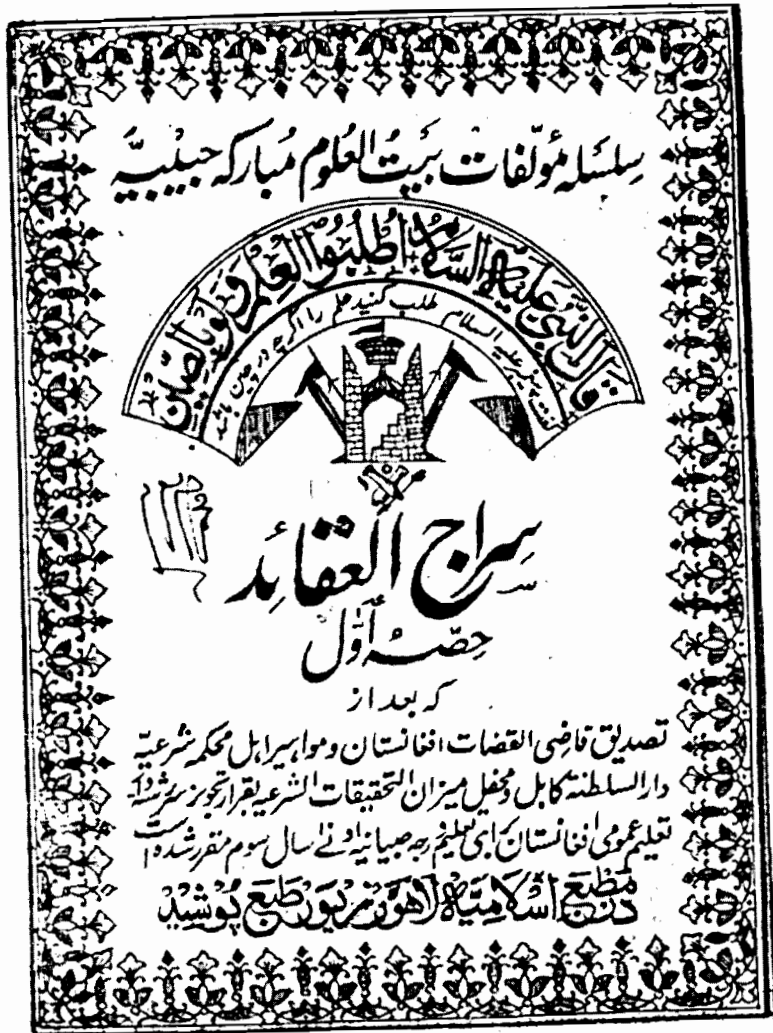 سِلسِلہ مؤلّفات بَیتُ العُلوم مُبارکہ حَبیبیّہ
قال النبی علیه السلام اطلبوا العلم ولو بالصین
گفت پیغمبر علیه السلام طلب کنید علم را اگرچه در چین باشد
سِراج العقائِد
حِصّہ اوّل
که بعد از
تصدیق قاضی القضات افغانستان و مواهیر اهل محکمه شرعیّه
دار السلطنة کابل و محفل میزان التحقیقات الشرعیه بقرار تجویز سررشته دار
تعلیم عمومی افغانستان برای تعلیم درجه صبیانیه ادنے سال سوم مقرر شده است
در مطبع اسلامیه لاهور بزیور طبع پوشید